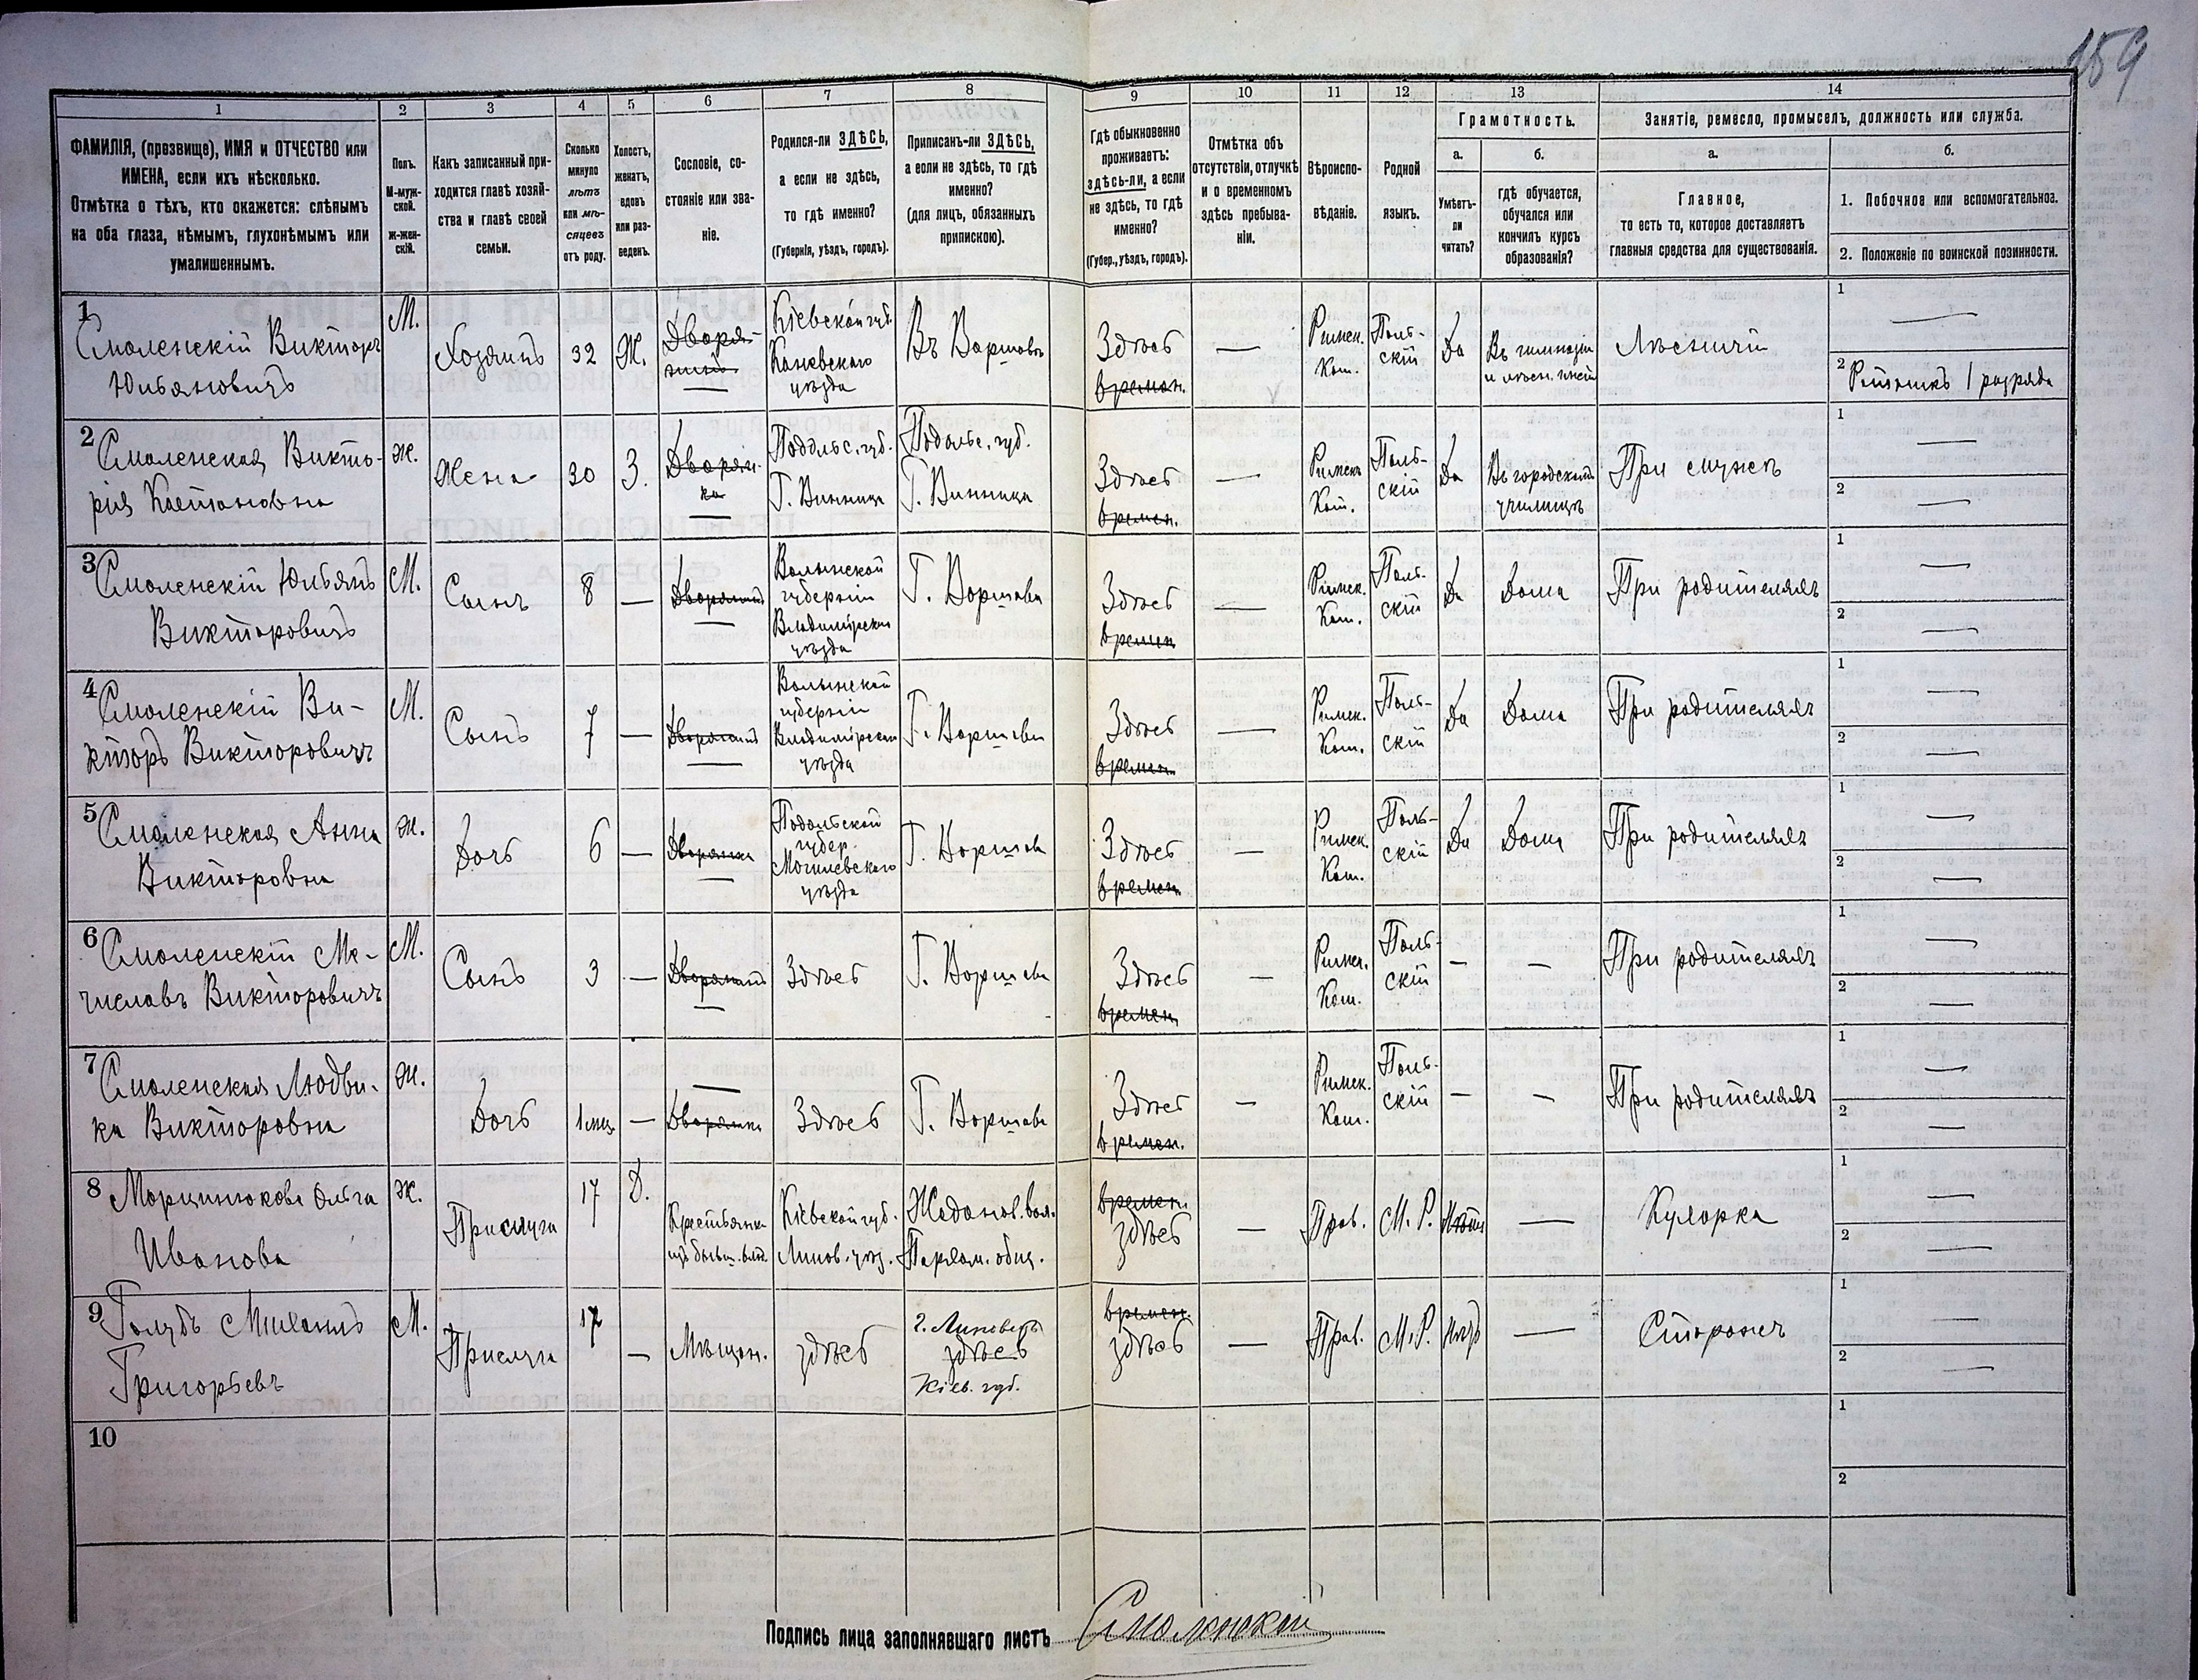 159
1 2 3 4 5 6 7 8 9 10 11 12 13 14
ФАМИЛІЯ, (прозвище), ИМЯ и ОТЧЕСТВО или
ИМЕНА, если ихъ нѣсколько.
Отмѣтка о тѣхъ, кто окажется: слѣпымъ
на оба глаза, нѣмымъ, глухонѣмымъ или
умалишеннымъ.
Полъ.
М-муж-
ской.
ж-жен-
скій.
Какъ записанный при-
ходится главѣ хозяй-
ства и главѣ своей
семьи.
Сколько
минуло
лѣтъ
или мѣ-
сяцевъ
отъ роду.
Холостъ,
женатъ,
вдовъ
или раз-
веденъ.
Сословіе, со-
стояніе или зва-
ніе.
Родился-ли ЗДѢСЬ,
а если не здѣсь,
то гдѣ именно?
(Губернія, уѣздъ, городъ).
Приписанъ-ли ЗДѢСЬ,
а если не здѣсь, то гдѣ
именно?
(для лицъ, обязанныхъ
припискою).
Гдѣ обыкновенно
проживаетъ:
здѣсь-ли, а если
не здѣсь, то гдѣ
именно?
(Губер., уѣздъ, городъ).
Отмѣтка объ
отсутствіи, отлучкѣ
и о временномъ
здѣсь пребыва-
ніи.
Вѣроиспо-
вѣданіе.
Родной
языкъ.
Грамотность.
а.
Умѣетъ-
ли
читать?
б.
гдѣ обучается,
обучался или
кончилъ курсъ
образованія?
Занятіе, ремесло, промыселъ, должность или служба.
а.
Главное,
то есть то, которое доставляетъ
главныя средства для существованія.
б.
1. Побочное или вспомогательное.
2. Положеніе по воинской повинности.
1
Смоленскій Викторъ
Юльяновичъ
М.
Хозяинъ
32
Ж.
Дворя-
нинъ
Кіевской губ.
Каневскаго
уѣзда
Въ Варшавѣ
Здѣсь
времен.
—
Римск.
Кат.
Поль-
скій
Да
Въ гимназіи
Лѣсничій
1 —
2 Ратникъ 1 разряда
2
Смоленская Викто-
рія Каетановна
Ж.
Жена
30
З.
Дворян-
ка
Подольс. губ.
Г. Винница
Подольс. губ.
Г. Винница
Здѣсь
времен.
—
Римск.
Кат.
Поль-
скій
Да
Въ городскомъ
училищѣ
При мужѣ
1 —
2 —
3
Смоленскій Юльянъ
Викторовичъ
М.
Сынъ
8
—
Дворянинъ
Волынской
губерніи
Владимірскаго
уѣзда
Г. Варшава
Здѣсь
времен.
—
Римск.
Кат.
Поль-
скій
Да
Дома
При родителяхъ
1 —
2 —
4
Смоленскій Ви-
кторъ Викторовичъ
М.
Сынъ
7
—
Дворянинъ
Волынской
губерніи
Владимірскаго
уѣзда
Г. Варшава
Здѣсь
времен.
—
Римск.
Кат.
Поль-
скій
Да
Дома
При родителяхъ
1 —
2 —
5
Смоленская Анна
Викторовна
Ж.
Дочь
6
—
Дворянка
Подольской
губер.
Могилевскаго
уѣзда
Г. Варшава
Здѣсь
времен.
—
Римск.
Кат.
Поль-
скій
Да
Дома
При родителяхъ
1 —
2 —
6
Смоленскій Ме-
числавъ Викторовичъ
М.
Сынъ
3
—
Дворянинъ
Здѣсь
Г. Варшава
Здѣсь
времен.
—
Римск.
Кат.
Поль-
скій
—
—
При родителяхъ
1 —
2 —
7
Смоленская Людви-
ка Викторовна
Ж.
Дочь
1 мѣс.
—
Дворянка
Здѣсь
Г. Варшава
Здѣсь
времен.
—
Римск.
Кат.
Поль-
скій
—
—
При родителяхъ
1 —
2 —
8
Марцинюкова Ольга
Иванова
Ж.
Прислуга
17
Д.
Крестьянка
изъ бывш. влад.
Кіевской губ.
Липов. уѣз.
Жаданов. вол.
Здѣсь
времен.
—
Прав.
М. Р.
Нѣтъ
—
Кухарка
1 —
2 —
9
Голубъ Миланъ
Григорьевъ
М.
Прислуга
17
—
Мѣщан.
здѣсь
г. Липовецъ
здѣсь
Кіев. губ.
времен.
здѣсь
—
Прав.
М. Р.
Нѣтъ
—
Сторожъ
1 —
2 —
10
1
2
Подпись лица заполнявшаго листъ Смоленскій